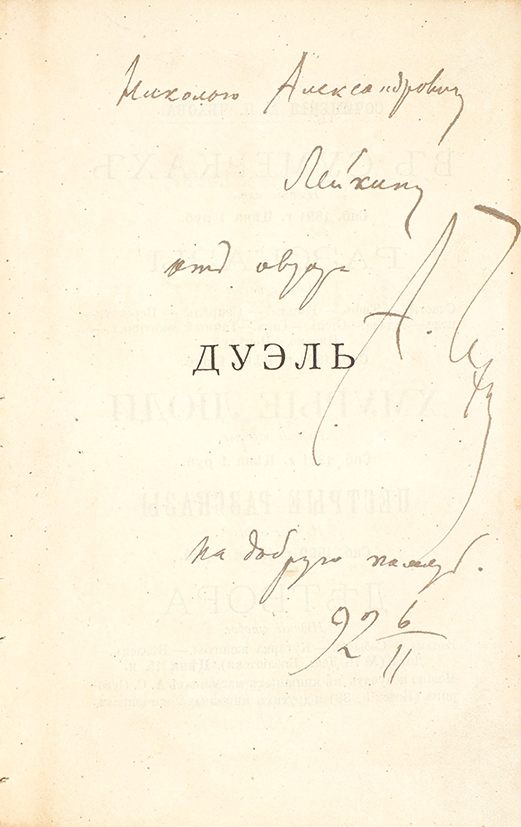 Николаю Александровичу
Лейкину
отъ автора
А. Чехов
ДУЭЛЬ
на добрую память.
92 6/II